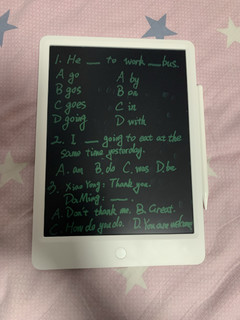 1. He __ to work __ bus.
A go A by
B gos B on
C goes C in
D going D with
2. I __ going to eat at the
same time yesterday.
A. am B. do C. was D. be
3. Xiao Yong: Thank you.
Da Ming: __.
A. Don't thank me. B. Great.
C. How do you do. D. You are welcome